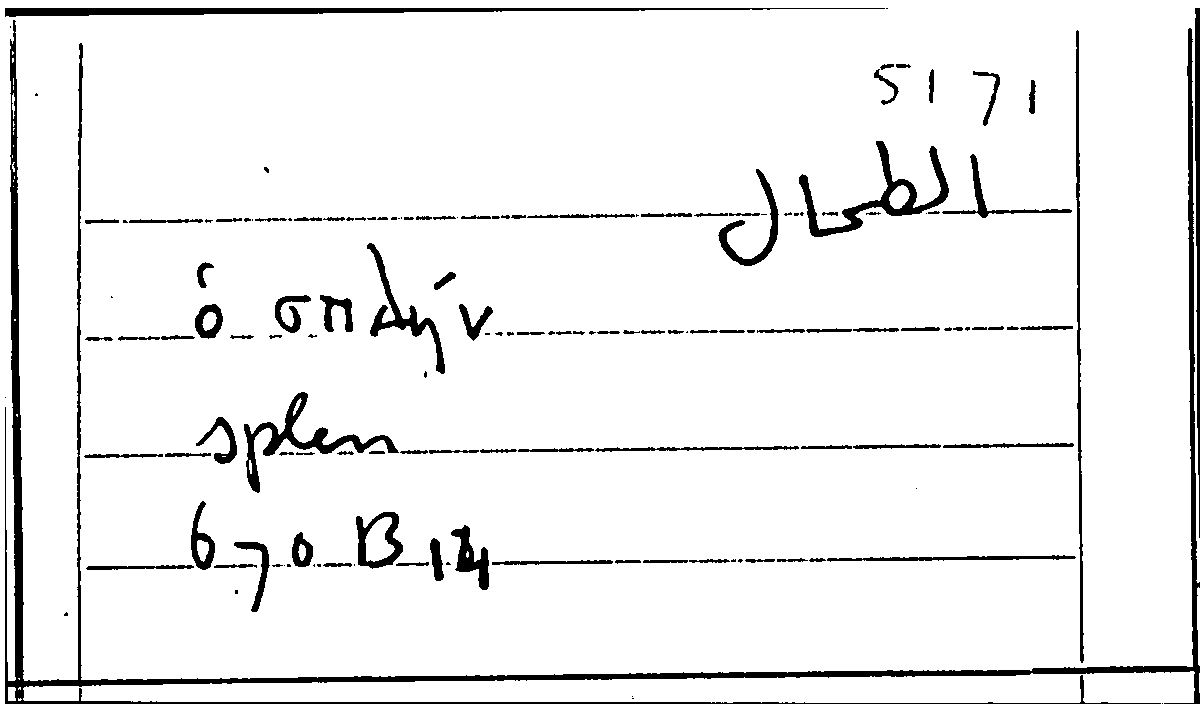 51 71
الطحال
ὁ σπλήν
splen
670 B 14